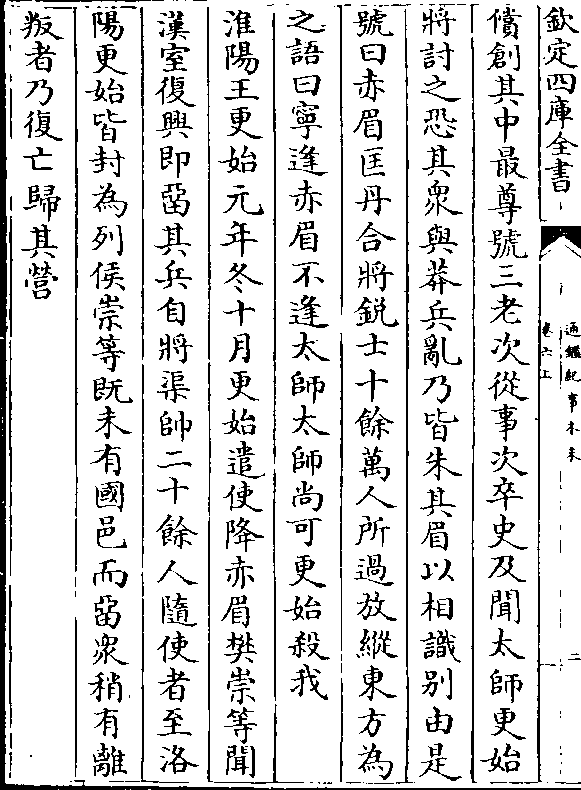 欽定四庫全書
通鑑紀事本末
卷六上
二
償創其中最尊號三老次從事次卒史及聞太師更始
將討之恐其衆與莽兵亂乃皆朱其眉以相識别由是
號曰赤眉匡丹合將鋭士十餘萬人所過放縱東方為
之語曰寧逢赤眉不逢太師太師尚可更始殺我
淮陽王更始元年冬十月更始遣使降赤眉樊崇等聞
漢室復興即畱其兵自將渠帥二十餘人隨使者至洛
陽更始皆封為列侯崇等既未有國邑而畱衆稍有離
叛者乃復亡歸其營